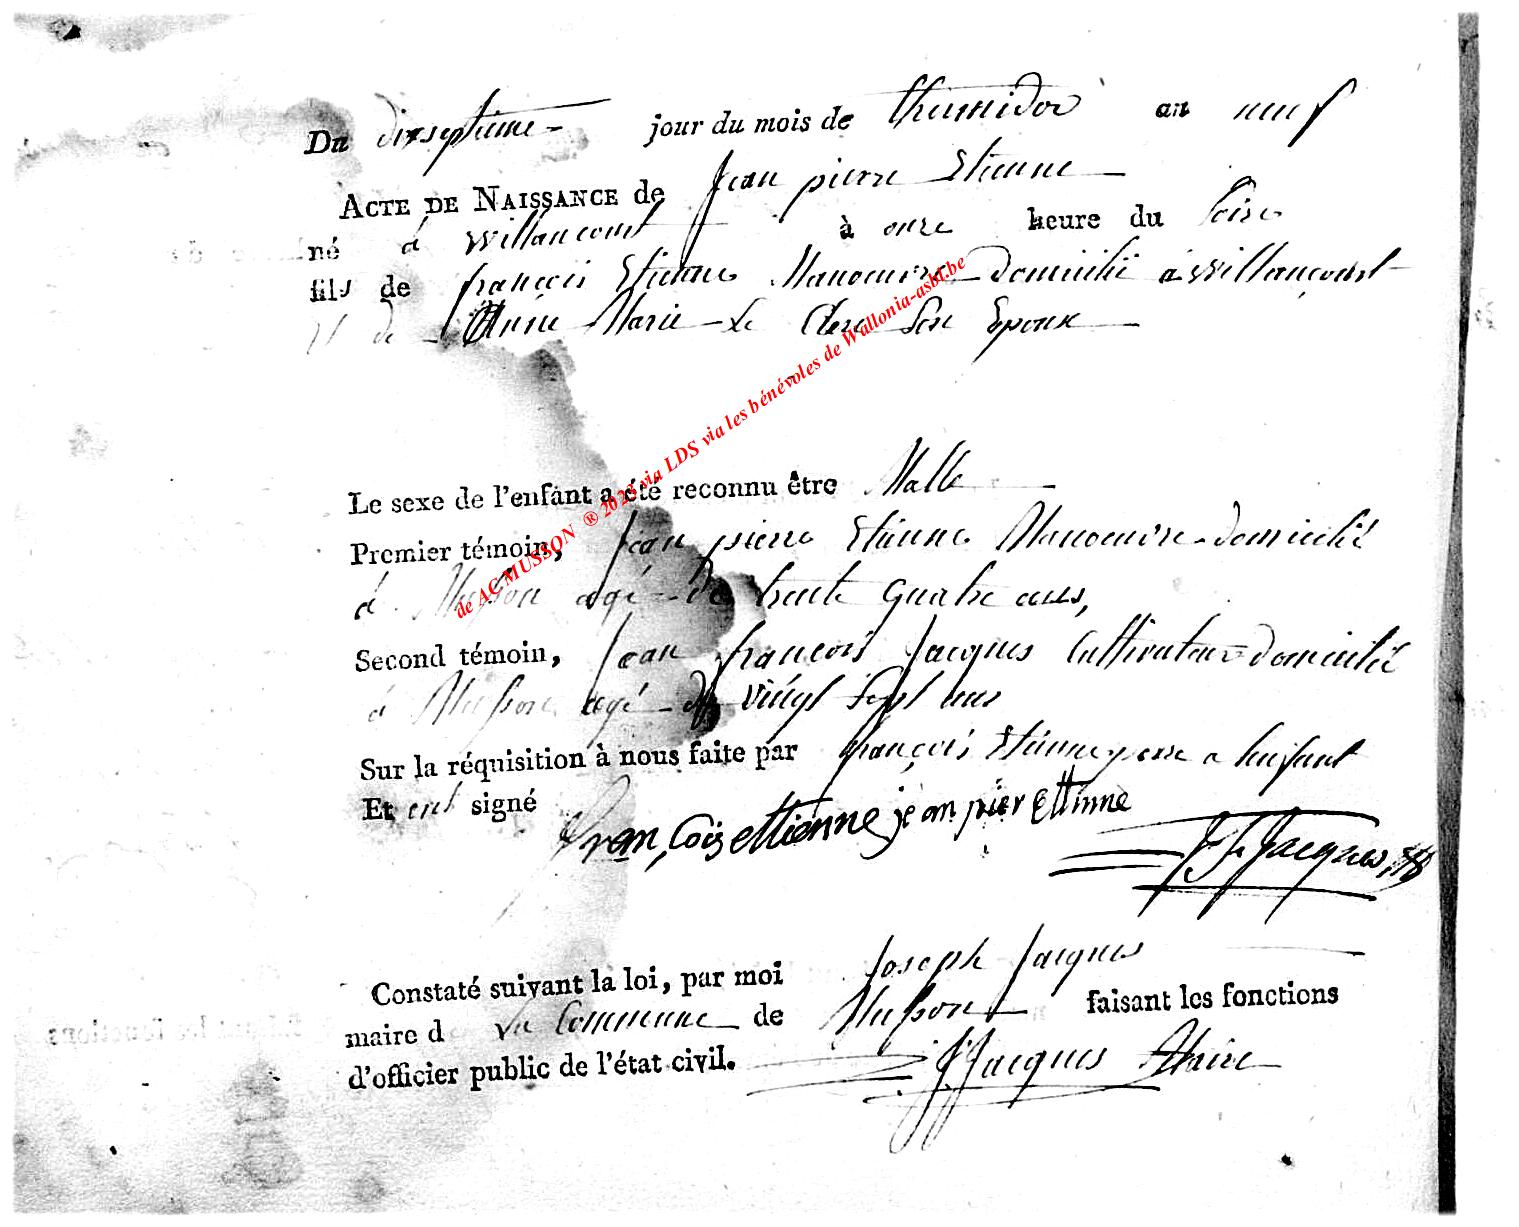 Du dixseptieme jour du mois de thermidor an neuf
ACTE DE NAISSANCE de Jean pierre Etienne
né à Willancourt à onze heure du soire
fils de françois Etienne Manoeuvre Domicilié à Willancourt
et de Anne Marie Le Clerc Son Epouse
Le sexe de l'enfant a été reconnu être Malle
Premier témoin, Jean pierre Etienne Manoeuvre domicilié
à Musson agé de trente quatre ans,
Second témoin, Jean françois Jacques Cultivateur domicilié
à Musson agé de vingt Sept ans
Sur la réquisition à nous faite par françois Etienne pere a lenfant
Et ont signé
françois ettienne jean pier Ettinne
J f Jacques
Constaté suivant la loi, par moi Joseph Jacques
maire d la Commune de Musson faisant les fonctions
d'officier public de l'état civil. J Jacques Maire
de AC MUSSON ® 2023 via LDS via les bénévoles de Wallonia-asbl.be